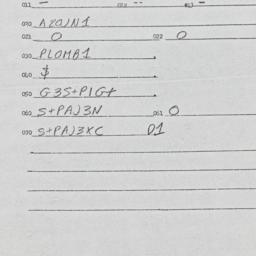 011 023 013
020 AZOJN1
021 O 022 O
030 PLOMB1
040 $
050 G3S+P1G+
060 S+PAJ3N 061 O
070 S+PAJ3XC 01